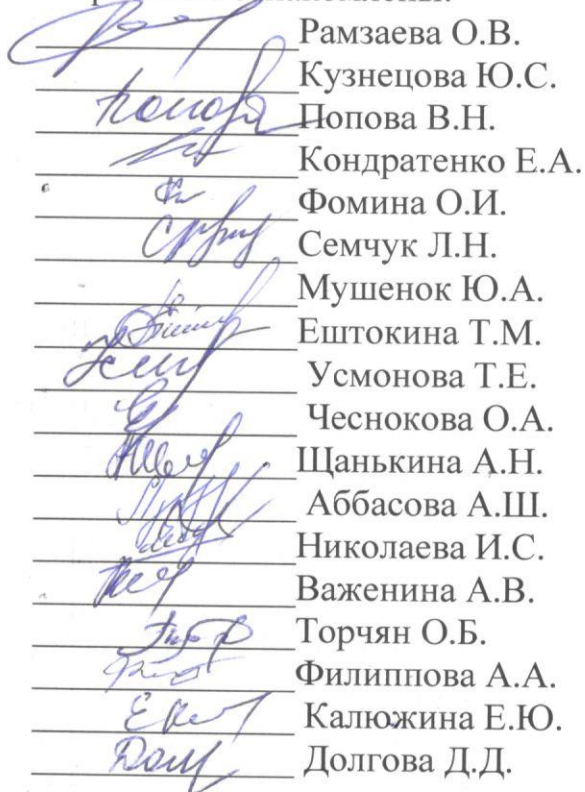 Рамзаева О.В.
Кузнецова Ю.С.
Попова В.Н.
Кондратенко Е.А.
Фомина О.И.
Семчук Л.Н.
Мушенок Ю.А.
Ештокина Т.М.
Усмонова Т.Е.
Чеснокова О.А.
Щанькина А.Н.
Аббасова А.Ш.
Николаева И.С.
Важенина А.В.
Торчян О.Б.
Филиппова А.А.
Калюжина Е.Ю.
Долгова Д.Д.